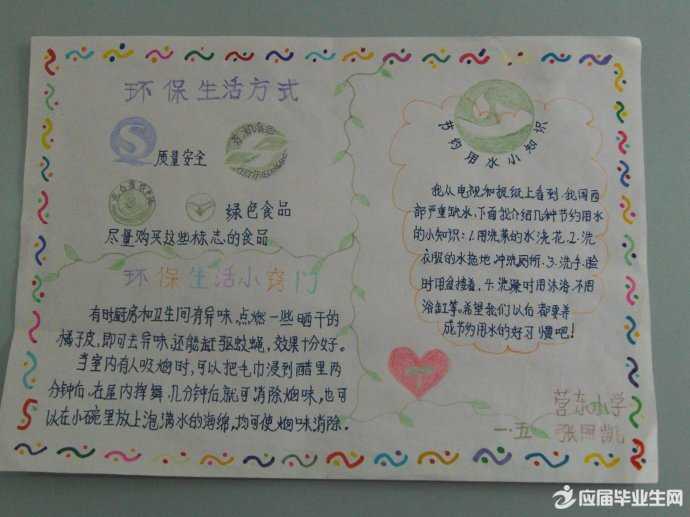 环保生活方式
质量安全
绿色食品
尽量购买这些标志的食品
环保生活小窍门
有时厨房和卫生间有异味,点燃一些晒干的
橘子皮,即可去异味,还能缸驱蚊蝇,效果十分好。
当室内有人吸烟时,可以把毛巾浸到醋里两
分钟后,在屋内挥舞,几分钟后就可消除烟味,也可
以在小碗里放上泡满水的海绵,均可使烟味消除.
节约用水小知识
我从电视和报纸上看到,我国西
部严重缺水,下面我介绍几种节约用水
的小知识:1.用洗菜的水浇花.2.洗
衣服的水拖地冲洗厕所.3.洗手、脸
时用盆接着.4.洗澡时用沐浴,不用
浴缸等。希望我们以后都要养
成节约用水的好习惯吧!
营东小学
一.五 张恩凯
应届毕业生网